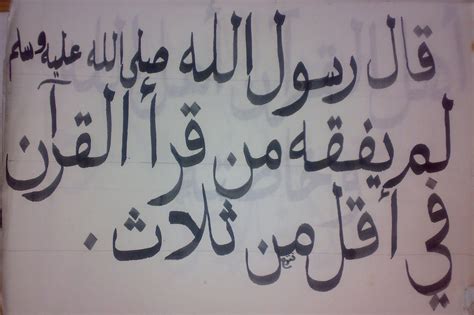 قال رسول الله صلى الله عليه وسلم
لم يفقه من قرأ القرآن
في أقل من ثلاث .